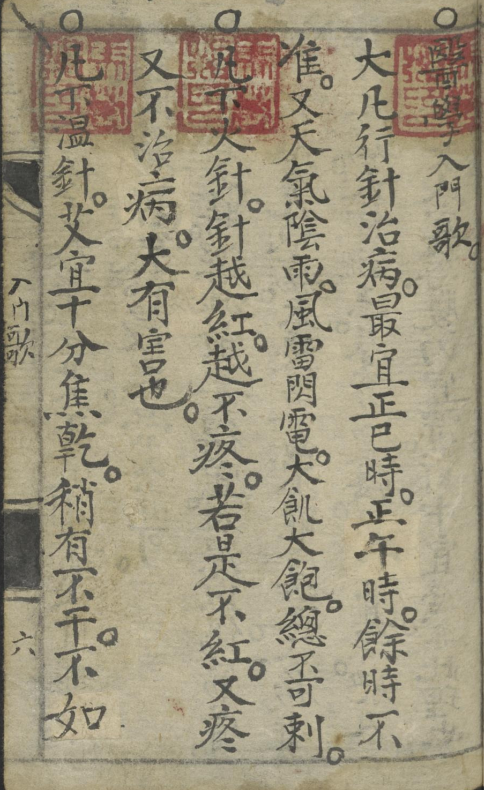 ○醫學入門歌。
大凡行針治病。最宜正巳時。正午時。餘時不
准。又天氣陰雨。風雷閃電。大飢大飽。總不可刺。
○凡下火針。針越紅。越不疼。若是不紅。又疼
又不治病。大有害也。
○凡下温針。艾宜十分焦乾。稍有不干。不如
入门歌
六